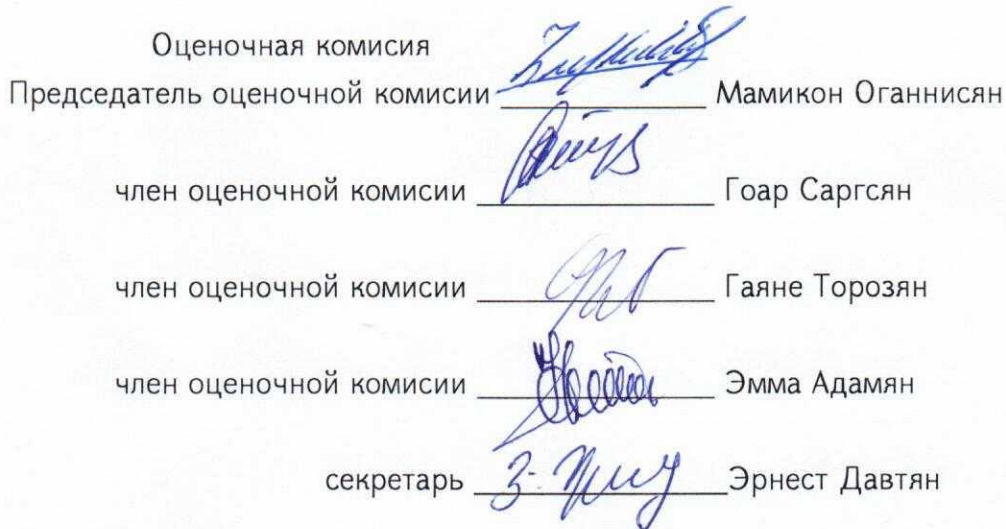 Оценочная комисия
Председатель оценочной комисии Мамикон Оганнисян
член оценочной комисии Гоар Саргсян
член оценочной комисии Гаяне Торозян
член оценочной комисии Эмма Адамян
секретарь Эрнест Давтян